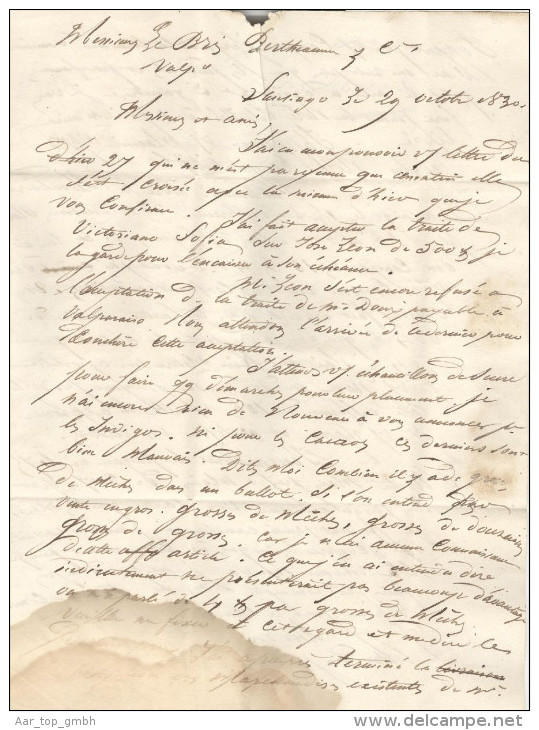 Messieurs Le Bris Bertheaume & Cie
Valpo
Santiago Le 29 octobre 1830.
Messieurs et amis,
J'ai en mon pouvoir v/ lettre du
d'hier 27 qui ne m'est parvenue que elle
s'est croisée avec la mienne d'hier que je
vous confirme.
J'ai fait accepter la traite de
Victoriano Sur José Leon de 500 $ je
la garde pour l'encaisser à son échéance.
Mr. Leon s'est encore refusé a
l'acceptation de la traite de Mr payable à
Valparaiso. Nous attendons l'arrivée de ce dernier pour
cette acceptation.
J'attends v/ échantillons de Sucre
pour faire qq démarches pour leur placement. je
n'ai encore rien de nouveau à vous annoncer pr
les Indigos. ni pour les Cacaos ces derniers sont
bien mauvais. Dites moi Combien il y a de
de Mêches dans un ballot. Si l'on entend
vente en gros. grosses de Mêches, grosses de douzaines
grosses de grosses. car je n'ai aucune Connaissance
de cette article. Ce que j'en ai entendu dire
indirectement ne présenterait pas beaucoup d'avantage
parlé de 4 $ par grosses de Mêches
cet egard et me dire les
terminé la livraison
existentes de Mr.
Aar_top_gmbh
delcampe.net